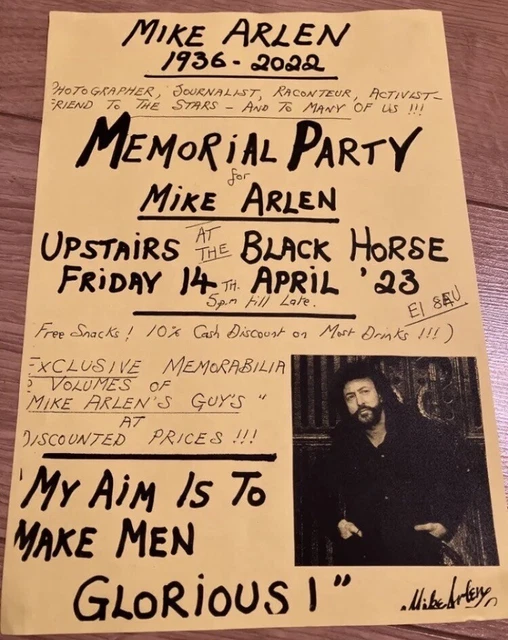 MIKE ARLEN
1936-2022
PHOTOGRAPHER, JOURNALIST, RACONTEUR, ACTIVIST-
FRIEND TO THE STARS - AND TO MANY OF US !!!
MEMORIAL PARTY
for
MIKE ARLEN
UPSTAIRS AT THE BLACK HORSE
FRIDAY 14TH. APRIL '23
5p.m till Late.
E1 8EU
Free Snacks! 10% Cash Discount on Most Drinks !!!)
EXCLUSIVE MEMORABILIA
VOLUMES OF
MIKE ARLEN'S GUY'S "
AT
DISCOUNTED PRICES !!!
"MY AIM IS TO
MAKE MEN
GLORIOUS!"
Mike Arlen